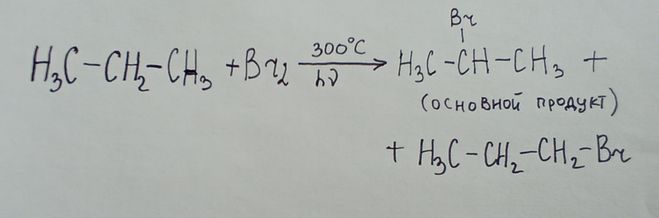 Br
H₃C-CH₂-CH₃ + Br₂ 300°C hν → H₃C-CH-CH₃ +
(основной продукт)
+ H₃C-CH₂-CH₂-Br